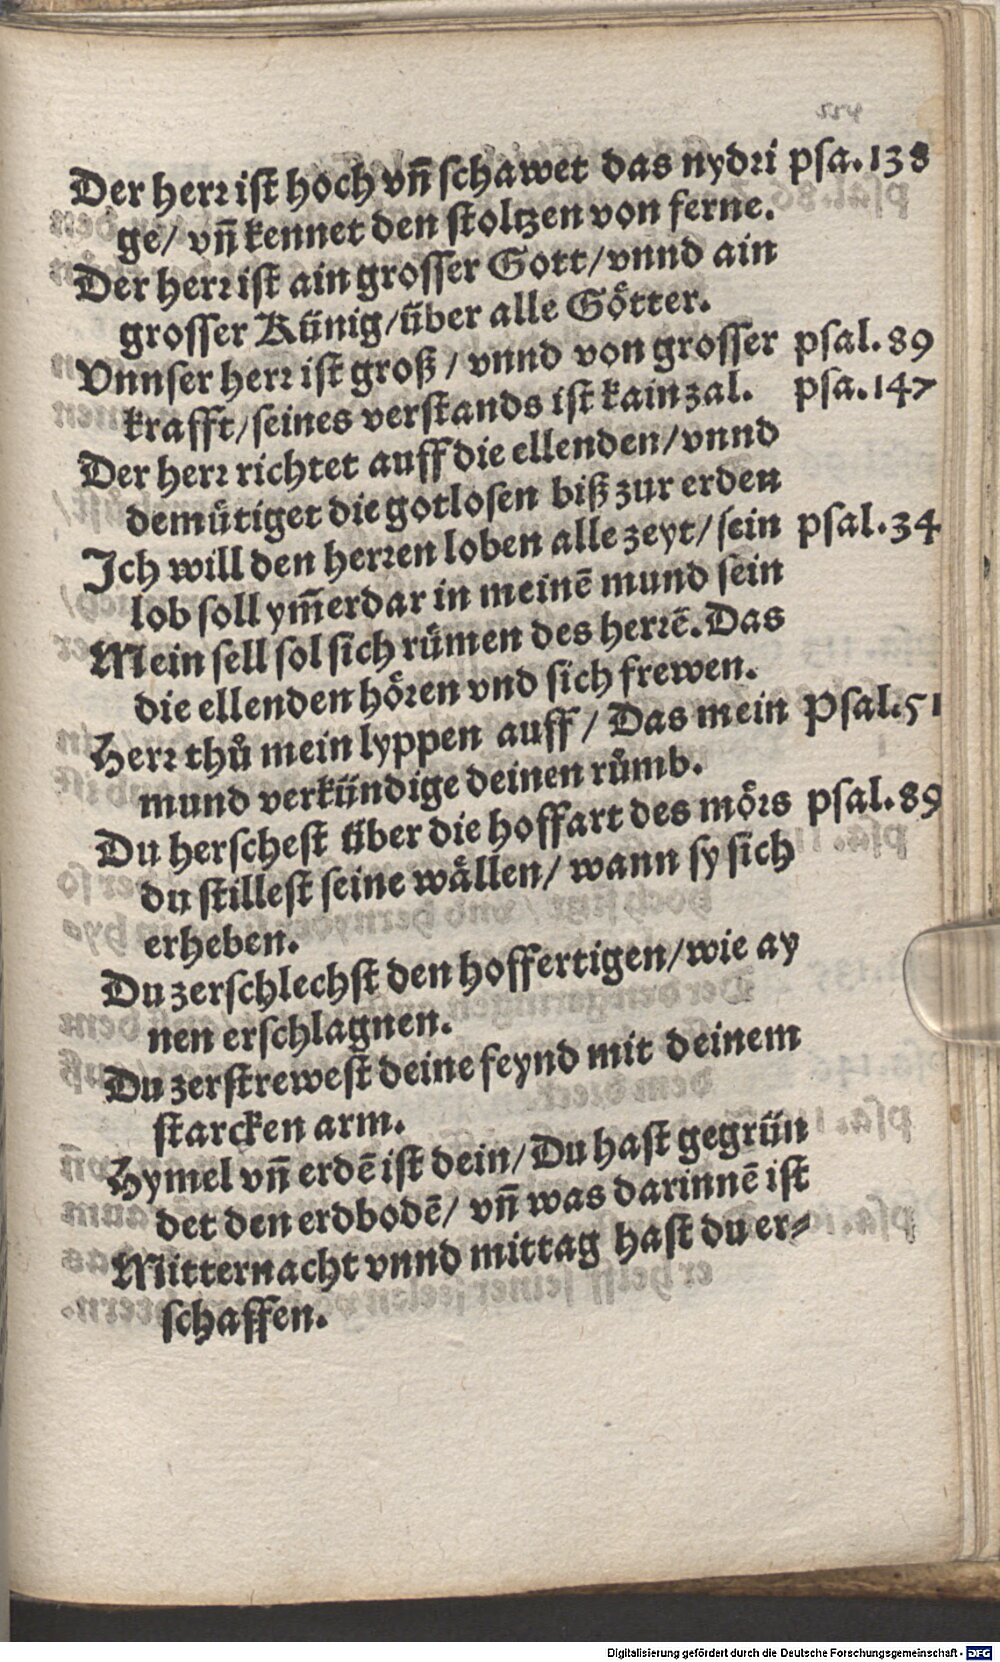 Der herr ist hoch vñ schawet das nydri psa. 138
ge/ vñ kennet den stoltzen von ferne.
Der herr ist ain grosser Gott/vnnd ain
grosser Künig/über alle Goͤtter.
Vnnser herr ist groß/ vnnd von grosser psal. 89
krafft/seines verstands ist kain zal. psa. 147
Der herr richtet auff die ellenden/vnnd
demuͤtiget die gotlosen biß zur erden
Ich will den herren loben alle zeyt/ sein psal. 34
lob soll ym̃erdar in meinẽ mund sein
Mein sell sol sich ruͤmen des herrẽ. Das
die ellenden hoͤren vnd sich frewen.
Herr thů mein lyppen auff/ Das mein Psal. 51
mund verkündige deinen růmb.
Du herschest über die hoffart des moͤrs psal. 89
du stillest seine waͤllen/ wann sy sich
erheben.
Du zerschlechst den hoffertigen/wie ay
nen erschlagnen.
Du zerstrewest deine feynd mit deinem
starcken arm.
Hymel vñ erdẽ ist dein/ Du hast gegrün
det den erdbodẽ/ vñ was darinnẽ ist
Mitternacht vnnd mittag hast du er⸗
schaffen.
Digitalisierung gefördert durch die Deutsche Forschungsgemeinschaft - DFG